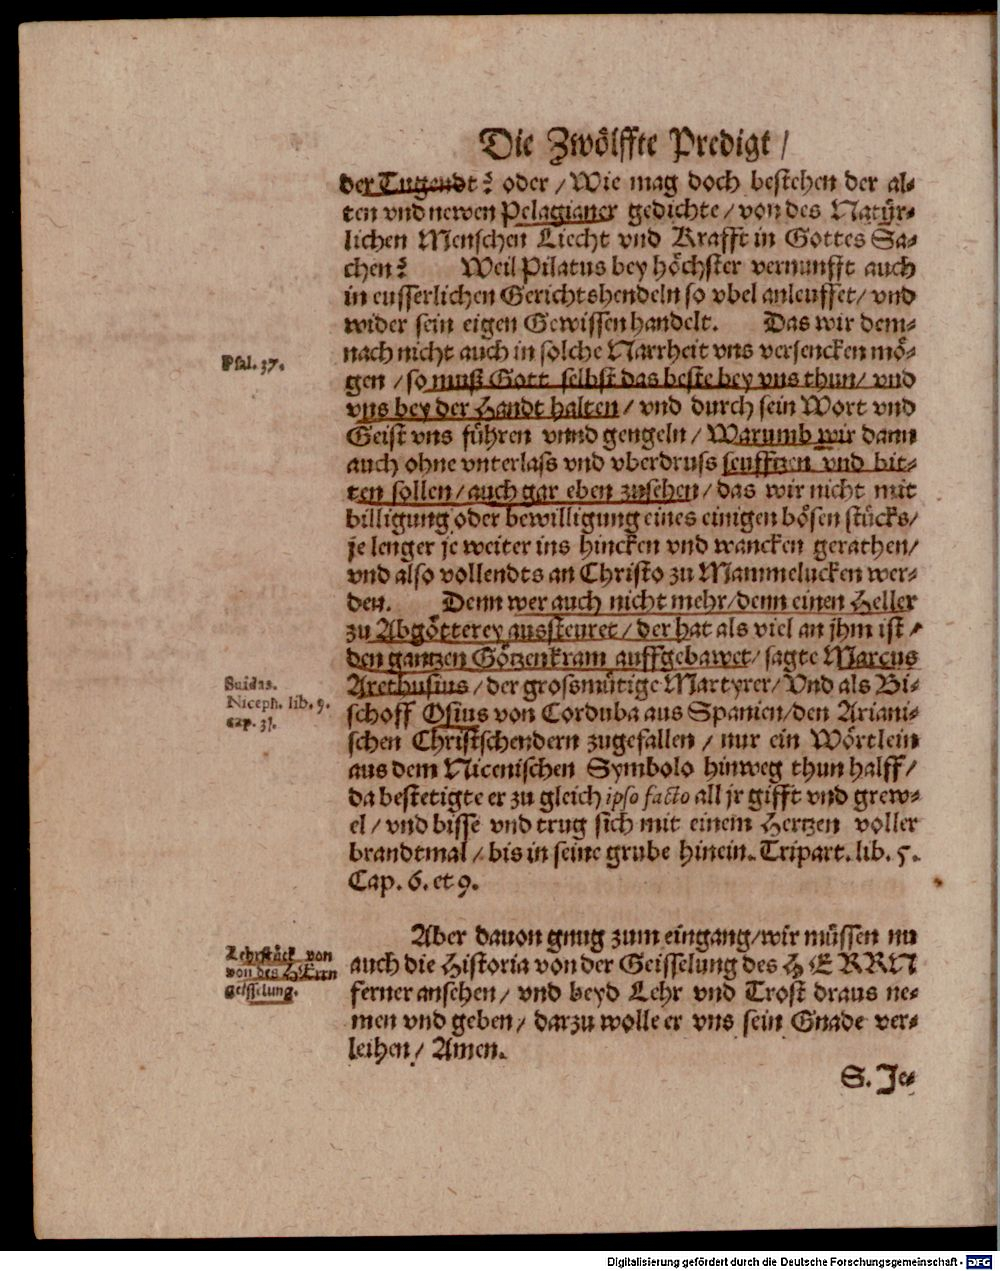 Die Zwölffte Predigt /
der Tugendt? oder / Wie mag doch bestehen der al-
ten vnd newen Pelagianer gedichte / von des Natür-
lichen Menschen Liecht vnd Krafft in Gottes Sa-
chen? Weil Pilatus bey höchster vernunfft auch
in eusserlichen Gerichtshendeln so vbel anleuffet / vnd
wider sein eigen Gewissen handelt. Das wir dem-
nach nicht auch in solche Narrheit vns versencken mö-
Psal. 37.
gen / so muß Gott selbst das beste bey vns thun / vnd
vns bey der Handt halten / vnd durch sein Wort vnd
Geist vns führen vnnd gengeln / Warumb wir dann
auch ohne vnterlass vnd vberdruss seufftzen vnd bit-
ten sollen / auch gar eben zusehen / das wir nicht mit
billigung oder bewilligung eines einigen bösen stücks /
je lenger je weiter ins hincken vnd wancken gerathen /
vnd also vollendts an Christo zu Mammelucken wer-
den. Denn wer auch nicht mehr / denn einen Heller
zu Abgötterey aussteuret / der hat als viel an jhm ist /
den gantzen Götzenkram auffgebawet / sagte Marcus
Suidas.
Arethusius / der grossmütige Martyrer / Vnd als Bi-
Niceph. lib. 9.
schoff Osius von Corduba aus Spanien / den Ariani-
cap. 31.
schen Christschendern zugefallen / nur ein Wörtlein
aus dem Nicenischen Symbolo hinweg thun halff /
da bestetigte er zu gleich ipso facto all jr gifft vnd grew-
el / vnd bisse vnd trug sich mit einem Hertzen voller
brandtmal / bis in seine grube hinein. Tripart. lib. 5.
Cap. 6. et 9.
Aber dauon gnug zum eingang / wir müssen nu
Lehrstück von
auch die Historia von der Geisselung des HERRN
von des HErrn
ferner ansehen / vnd beyd Lehr vnd Trost draus ne-
geisselung.
men vnd geben / darzu wolle er vns sein Gnade ver-
leihen / Amen.
S. Je-
Digitalisierung gefördert durch die Deutsche Forschungsgemeinschaft - DFG